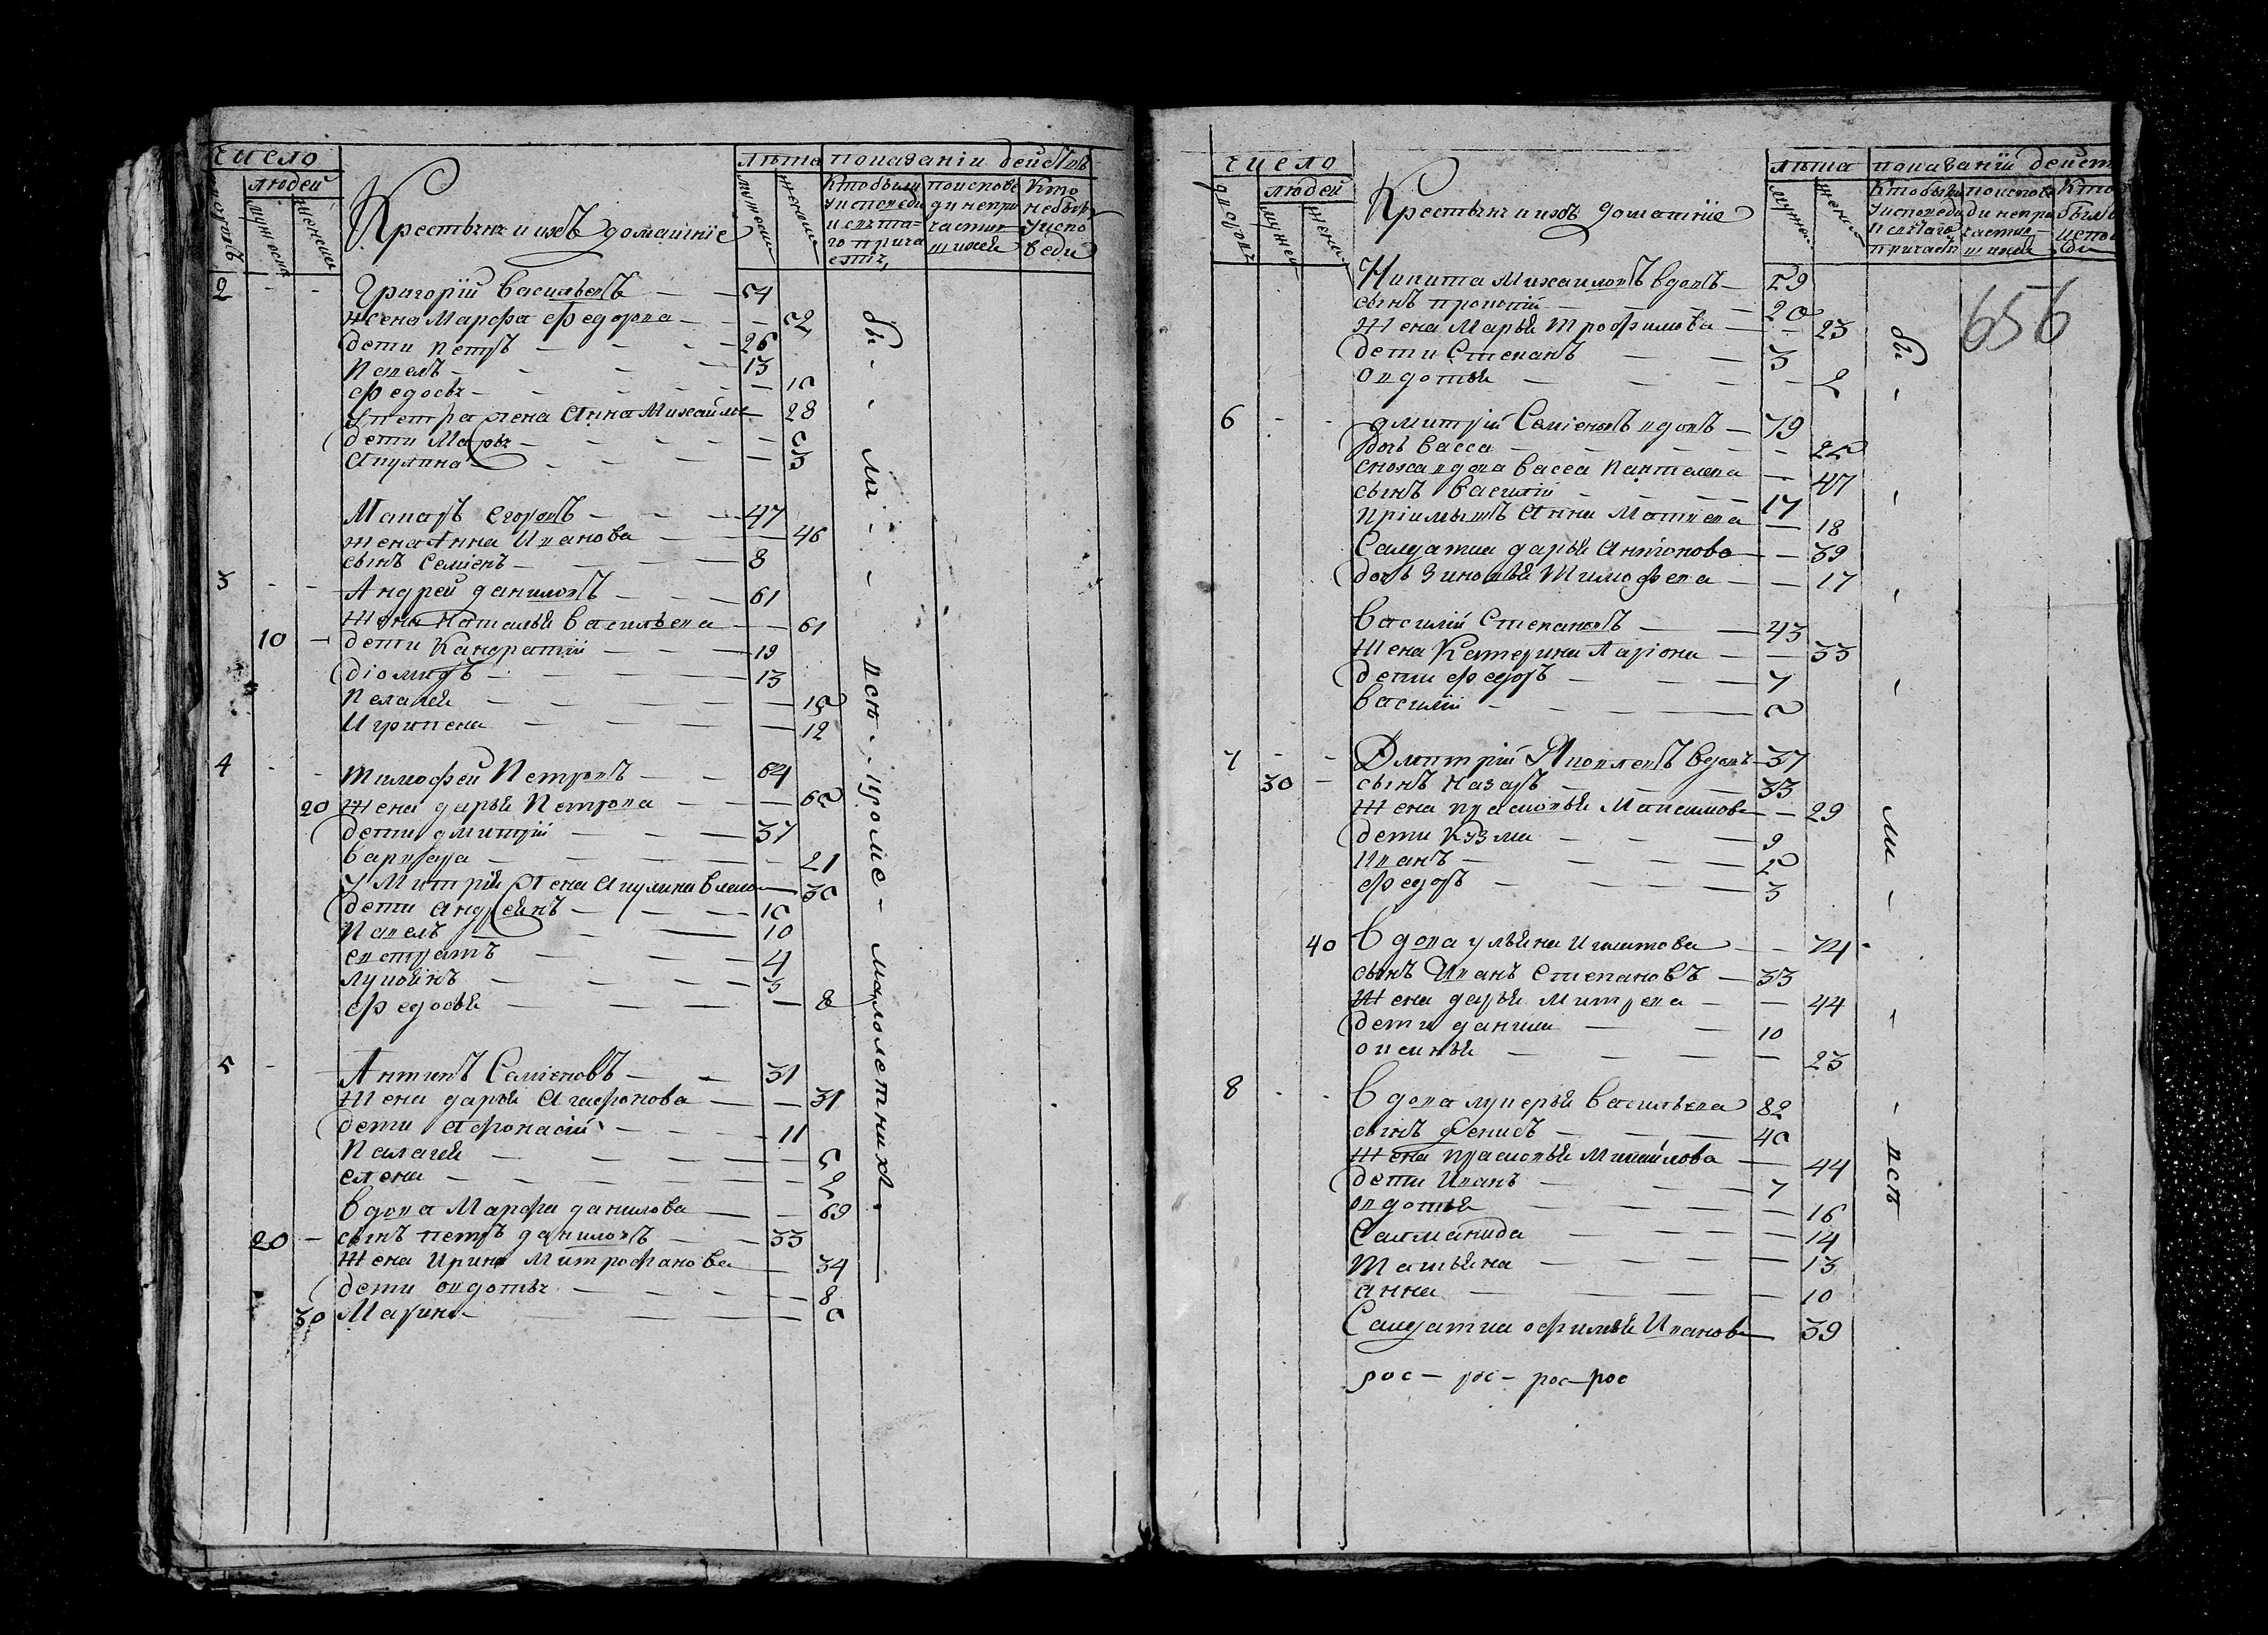 число
людей
дворовъ
мужеска
женска
Крестьяне и ихъ домашніе
лѣта
мужеска
женска
показаніи действъ
Кто были у исповеди и св҃таго причастія
по исповеди не причастники
Кто не былъ у исповеди
2 - - Григорій васильевъ — 54
жена Марфа федорова — 52
дети петръ — 26
павелъ — 13
федосья — 10
у петра жена Анна Михайлова — 28
дети Марья — 5
Акулина — 3
Макаръ Егоровъ — 47
жена Анна Иванова — 46
сынъ Семіенъ — 8
3 - - Андрей даниловъ — 61
жена Наталья васильева — 61
10 - дети Кандратій — 19
діомидъ — 13
пелагея — 15
Игрипена — 12
4 - - тимофей Петровъ — 64
20 жена дарья Петрова — 65
дети дмитрій — 37
варвара — 21
у Митрія жена Акулина власова — 30
дети андреянъ — 10
павелъ — 10
евстратъ — 4
лукоянъ — 3
федосья — 8
5 - - Антипъ Семіеновъ — 31
жена дарья Агафонова — 31
дети Афонасій — 11
палагея — 5
елена — 2
вдова Марфа данилова — 69
20 - сынъ петръ даниловъ — 33
жена Ирина Митрофанова — 34
дети овдотья — 8
30 Марина — 5
бы - ли - всѣ - кромѣ - малолетныхъ
число
людей
дворовъ
мужей
женъ
Крестьяне и ихъ домашніе
лѣта
мужей
женъ
показаніи дейст
Кто были у исповеди и св҃таго причастія
по исповеди не причастники
656
Никита Михаиловъ вдовъ — 59
сынъ прокопій — 20
жена Марья трофимова — 23
дети Степанъ — 3
овдотья — 2
6 - - дмитрій Семіеновъ вдовъ — 79
дочь васса — 25
сноха вдова васса пантелева — 47
сынъ василій — 17
пріимышъ Анна Матвева — 18
Салдатка дарья Антонова — 39
дочь Зиновья тимофева — 17
василій Степановъ — 43
жена Катерина Ларіона — 33
дети федоръ — 7
василій — 5
7 - - Дмитрій Яковлевъ вдовъ — 57
30 - сынъ назаръ — 33
жена прасковья Максимова — 29
дети Кузма — 9
Иванъ — 5
федоръ — 3
40 вдова ульяна Игнатова — 74
сынъ Иванъ Степановъ — 33
жена дарья Митрева — 44
дети данила — 10
оксинья — 23
8 - - вдова лукерья васильева 82
сынъ денисъ — 40
жена прасковья Михайлова — 44
дети Иванъ — 7
овдотья — 16
Салманида — 14
татьяна — 13
анна — 10
Салдатка офимья Иванова — 39
рос — рос — рос — рос
бы - ли - всѣ